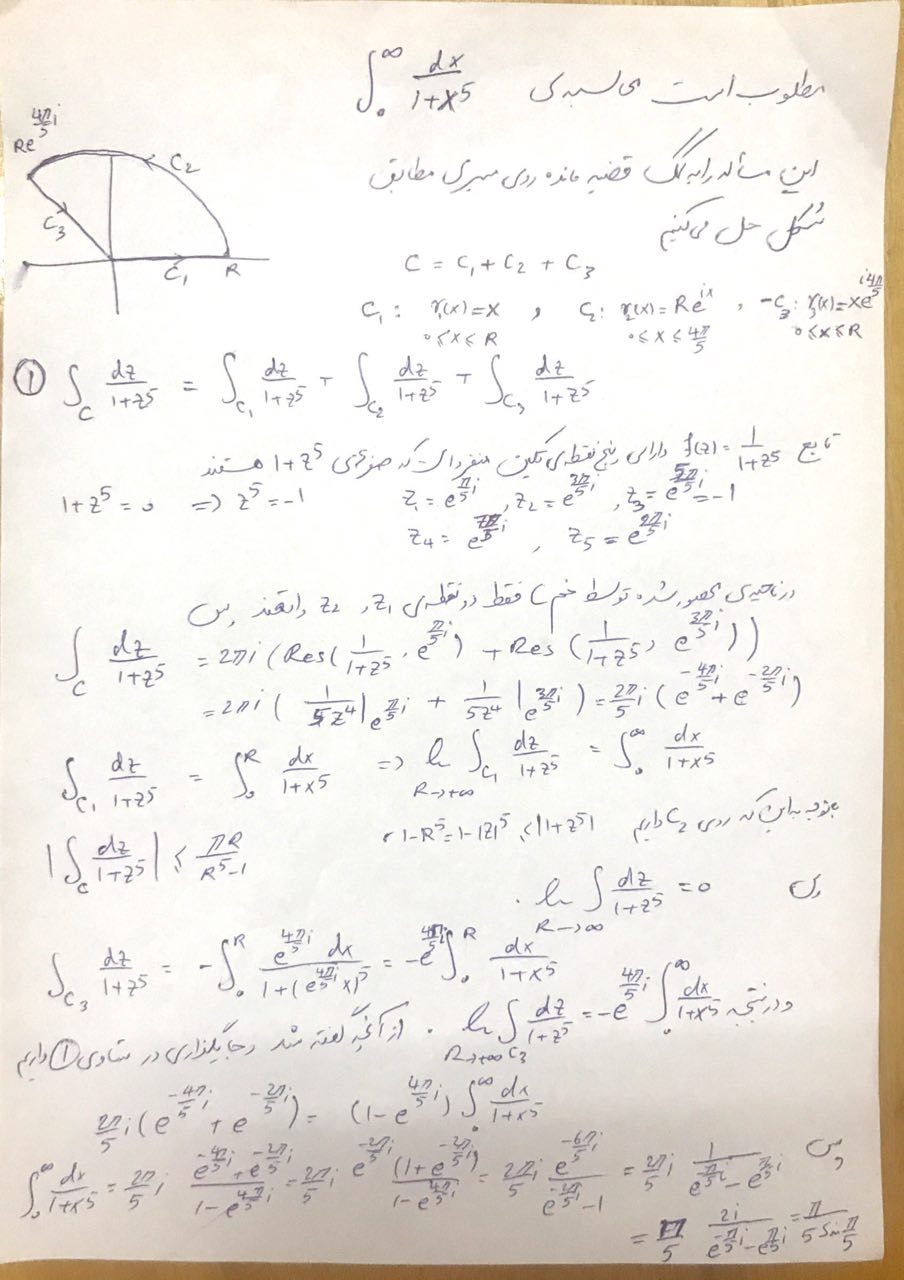 مطلوب است محاسبه‌ی ∫₀^∞ dx/(1+x⁵)
این مسأله را به کمک قضیه مانده روی مسیری مطابق
شکل حل می‌کنیم
Re^{4π/5 i}
C₂
C₃
C₁ R
C = C₁ + C₂ + C₃
C₁: γ₁(x)=x , C₂: γ₂(x)=Re^{ix} , -C₃: γ₃(x)=xe^{i4π/5}
0≤x≤R 0≤x≤4π/5 0≤x≤R
① ∫_C dz/(1+z⁵) = ∫_{C₁} dz/(1+z⁵) + ∫_{C₂} dz/(1+z⁵) + ∫_{C₃} dz/(1+z⁵)
تابع f(z)=1/(1+z⁵) دارای پنج نقطه‌ی تکین منفرد است که صفرهای 1+z⁵ هستند
1+z⁵=0 => z⁵=-1 z₁=e^{π/5 i}, z₂=e^{3π/5 i}, z₃=e^{5π/5 i}=-1
z₄=e^{7π/5 i}, z₅=e^{9π/5 i}
در ناحیه‌ی محصور شده توسط خم C فقط دو نقطه‌ی z₁ و z₂ واقعند پس
∫_C dz/(1+z⁵) = 2πi(Res(1/(1+z⁵), e^{π/5 i}) + Res(1/(1+z⁵), e^{3π/5 i}))
=2πi(1/5z⁴|e^{π/5 i} + 1/5z⁴|e^{3π/5 i}) = 2π/5 i(e^{-4π/5 i}+e^{-2π/5 i})
∫_{C₁} dz/(1+z⁵) = ∫₀^R dx/(1+x⁵) => lim_{R→+∞} ∫_{C₁} dz/(1+z⁵) = ∫₀^∞ dx/(1+x⁵)
با توجه به این که روی C₂ داریم 1-R⁵=1-|z|⁵ ≤ |1+z⁵|
|∫_C dz/(1+z⁵)| ≤ πR/(R⁵-1)
پس lim_{R→∞} ∫ dz/(1+z⁵) = 0 .
∫_{C₃} dz/(1+z⁵) = -∫₀^R e^{4π/5 i} dx/(1+(e^{4π/5 i}x)⁵) = -e^{4π/5 i} ∫₀^R dx/(1+x⁵)
و در نتیجه lim_{R→+∞} ∫_{C₃} dz/(1+z⁵) = -e^{4π/5 i} ∫₀^∞ dx/(1+x⁵)
. از آنچه گفته شد و جایگذاری در تساوی ① داریم
2π/5 i(e^{-4π/5 i}+e^{-2π/5 i}) = (1-e^{4π/5 i}) ∫₀^∞ dx/(1+x⁵)
پس
∫₀^∞ dx/(1+x⁵) = 2π/5 i (e^{-4π/5 i}+e^{-2π/5 i})/(1-e^{4π/5 i}) = 2π/5 i e^{-2π/5 i}(1+e^{-2π/5 i})/(1-e^{4π/5 i}) = 2π/5 i e^{-6π/5 i}/(e^{-2π/5 i}-1) = 2π/5 i 1/(e^{π/5 i}-e^{π/5 i})
= π/5 2i/(e^{-π/5 i}-e^{π/5 i}) = π/(5 Sin π/5)